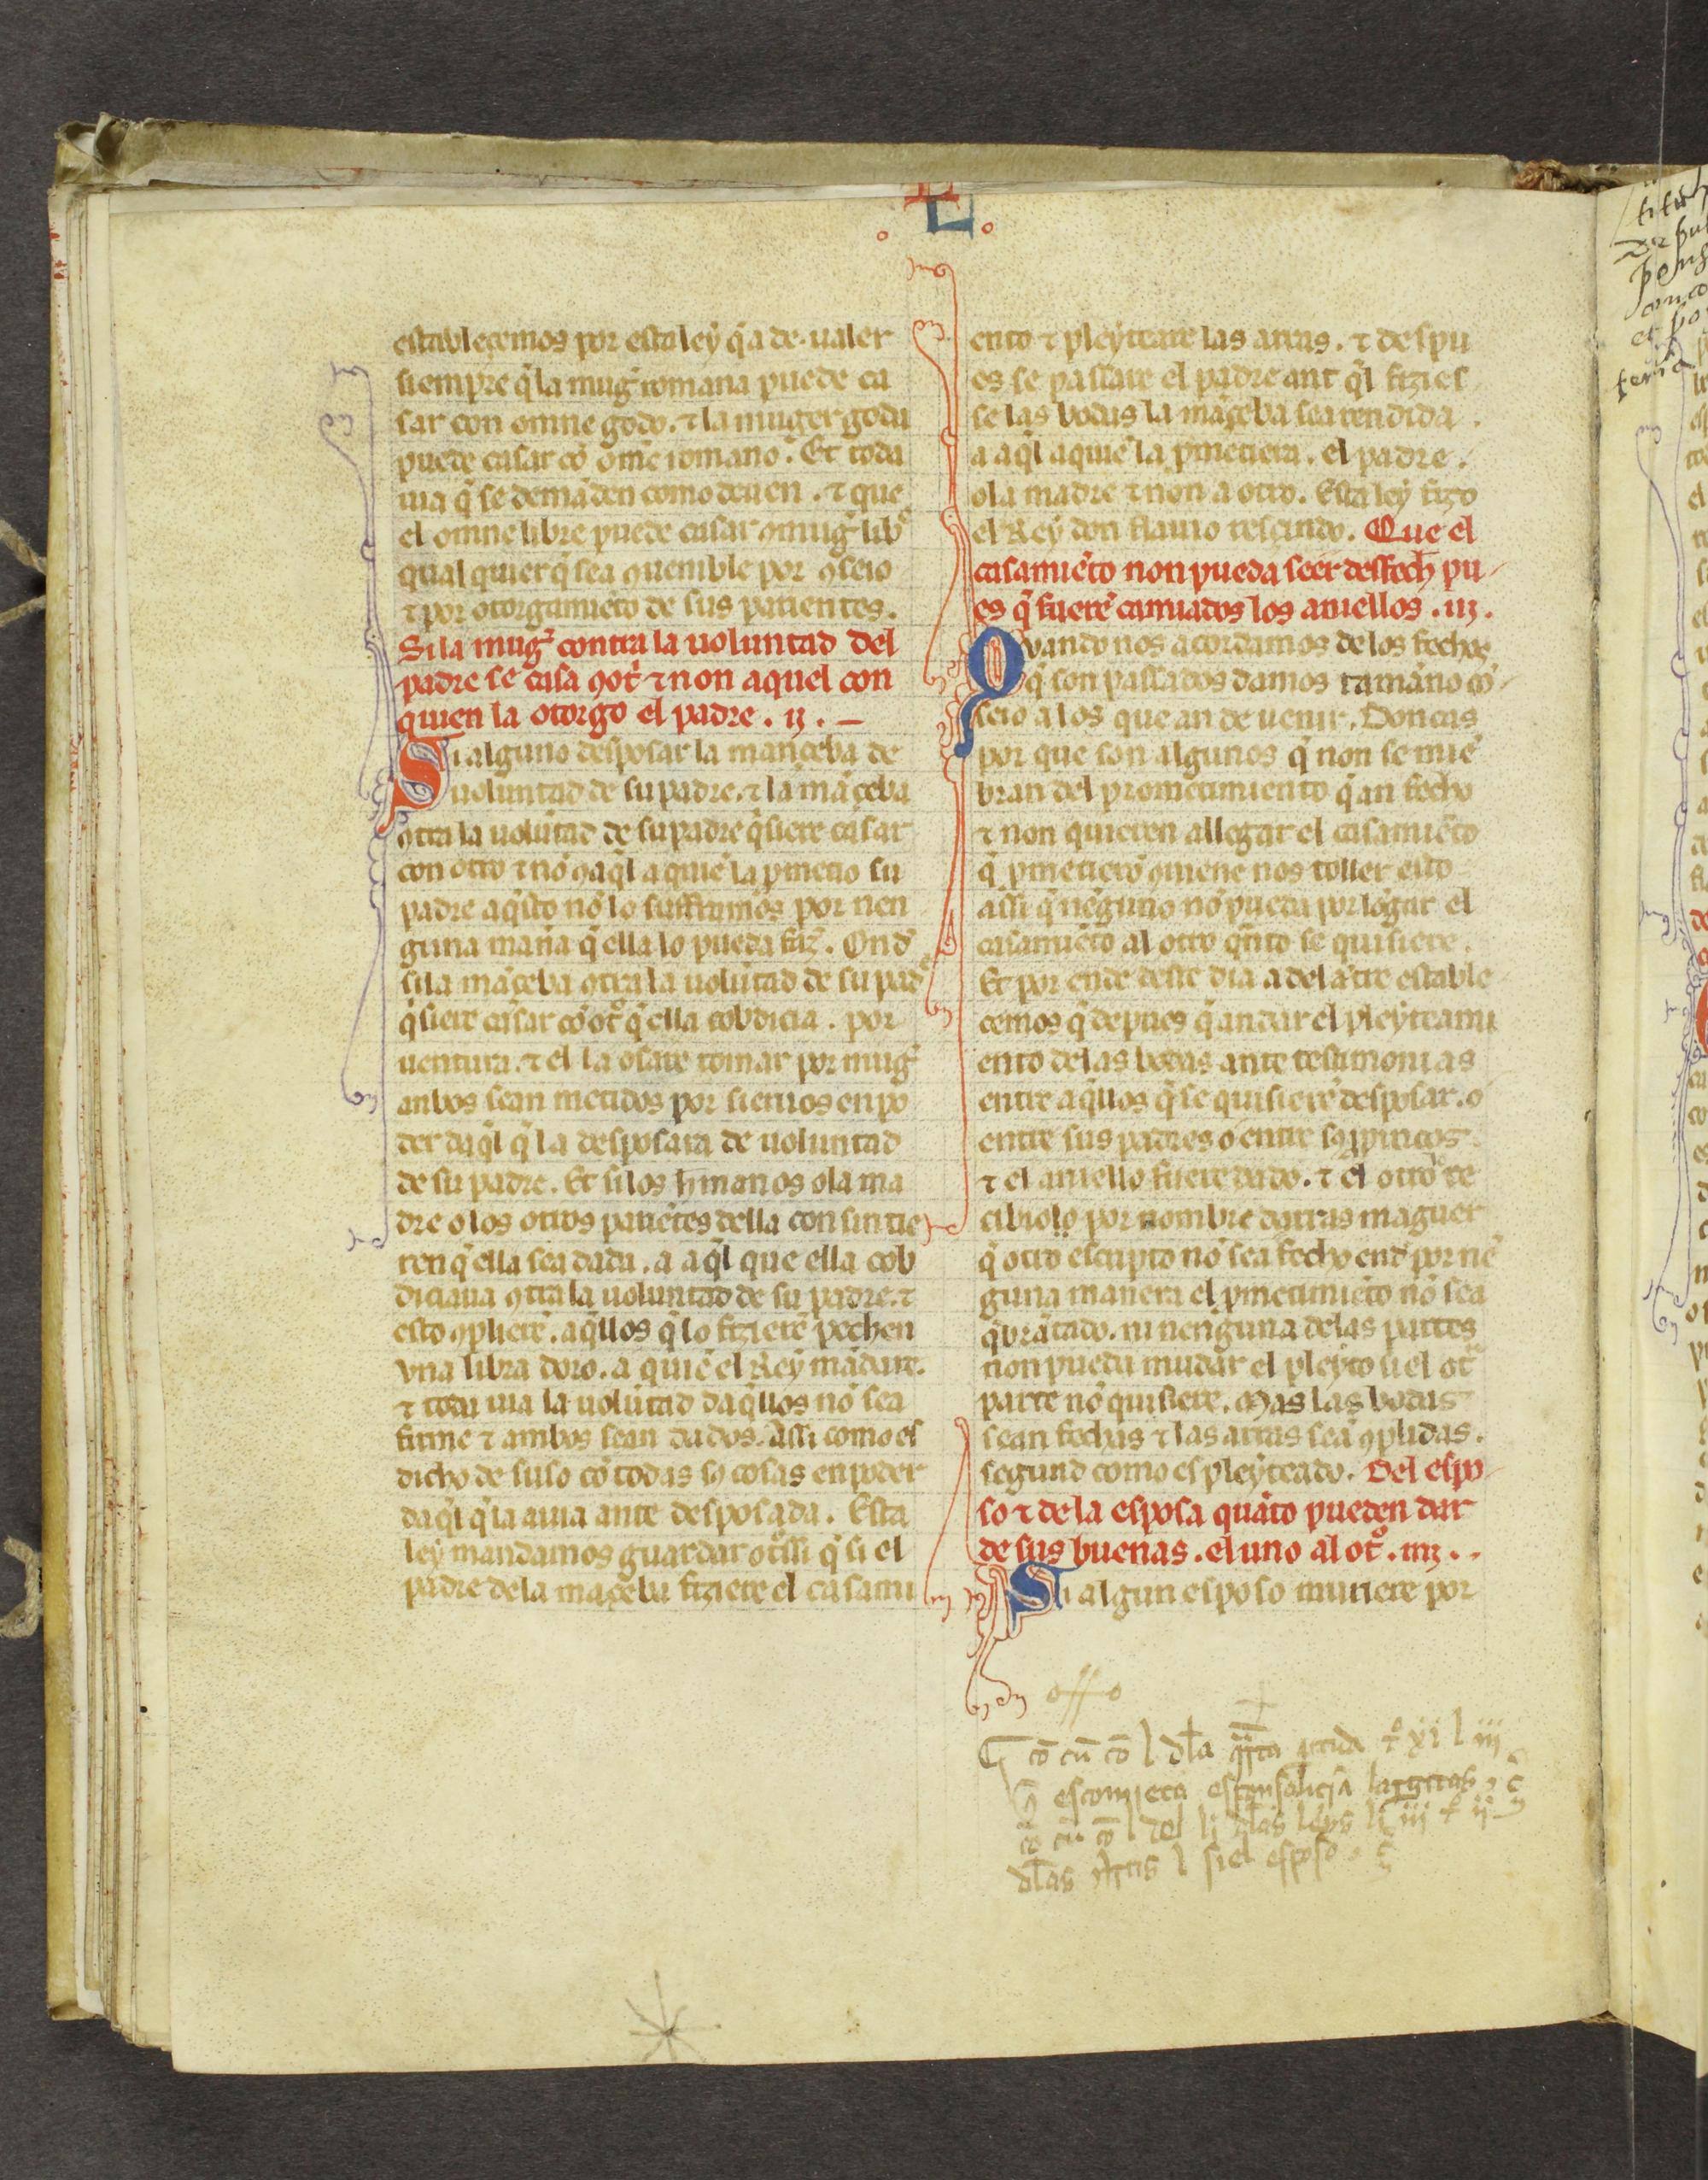 L
establecemos por esta ley q̃ a de ualer
siempre q̃ la mug̃ romana puede ca
sar con omne godo. ⁊ la muger goda
puede casar cõ om̃e romano. Et toda
uia q̃ se demãden como deuen. ⁊ que
el omne libre puede casar ꝯ mug̃ libͣ
qual quier q̃ sea ꝯuenible por ꝯseio
⁊ por otorgamiẽto de sus parientes.
Si la mug̃ contra la uoluntad del
padre se casa ꝯ ot̊ ⁊ non aquel con
quien la otorgo el padre. ij. –
Si alguno desposar la manceba de
uoluntad de su padre. ⁊ la mãceba
ꝯtra la uolũtad de su padre q̃siere casar
con otro ⁊ nõ ꝯ aq̃l a quiẽ la ꝓmetio su
padre aq̃sto nõ lo suffrimos por nen
guna mañã q̃ ella lo pueda faz̃. Ond̃
si la mãceba ꝯtra la uolũtad de su padᵉ
q̃siere casar cõ ot̊ q̃ ella cobdicia. por
uentura. ⁊ el la osare tomar por mug̃
anbos sean metidos por sieruos en po
der daq̃l q̃ la desposara de uoluntad
de su padre. Et si los h̃manos o la ma
dre o los otros pariẽtes della consintie
ren q̃ ella sea dada. a aq̃l que ella cob
diciaua ꝯtra la uoluntad de su padre. ⁊
esto ꝯplierẽ. aq̃llos q̃ lo fizierẽ pechen
vna libra doro. a quiẽ el Rey mãdare.
⁊ toda uia la uolũtad daq̃llos nõ sea
firme ⁊ ambos sean dados. assi como es
dicho de suso cõ todas sꝯ cosas en poder
daq̃l q̃ la auia ante desposada. Esta
ley mandamos guardar ot̊ssi q̃ si el
padre de la maçeba fiziere el casami
ento ⁊ pleyteare las arras. ⁊ despu
es se passare el padre ant q̃l fizies
se las bodas la mãçeba sea rendida.
a aq̃l a quiẽ la ꝓmetiera. el padre.
o la madre ⁊ non a otro. Esta ley fizo
el Rey don flauio resçindo. Que el
casamiẽto non pueda seer desfech̃ pu
es q̃ fuerẽ camiados los aniellos. iij.
Qvando nos acordamos de los fechos
q̃ son passados damos tamãno cõ
seio a los que an de uenir. Doncas
por que son algunos q̃ non se miẽ
bran del prometimiento q̃ an fecho
⁊ non quieren allegar el casamiẽto
q̃ ꝓmetierõ ꝯuiene nos toller esto
assi q̃ nẽguno nõ pueda porlogar el
casamiẽto al otro q̃nto se quisiere.
Et por ende deste dia adelãtre estable
cemos q̃ depues q̃ andar el pleyteami
ento de las bodas ante testimonias
entre aq̃llos q̃ se quisierẽ desposar. o
entre sus padres o entre sꝯ ꝓpincos
⁊ el aniello fuere dado. ⁊ el otro re
cibiolo por nombre darras maguer
q̃ otro escripto nõ sea fecho end̃ por nẽ
guna manera el ꝓmetimiẽto nõ sea
q̃brãtado. ni nenguna de las partes
non pueda mudar el pleyto si el otͣ
parte nõ quisiere. Mas las bodas
sean fechas ⁊ las arras seã ꝯplidas.
segund como es pleyteado. Del espo
so ⁊ de la esposa quãto pueden dar
de sus buenas. el uno al ot̊. iiij..
Si algun esposo muriere por
cõ cũ cõ l dl̃a q̃rta ptida t̊ xi l iij
esponsalicia largitas
cõ cũ cõ l del li dl̃as leys li iij t̊ ij
dl̃as l si el esposo